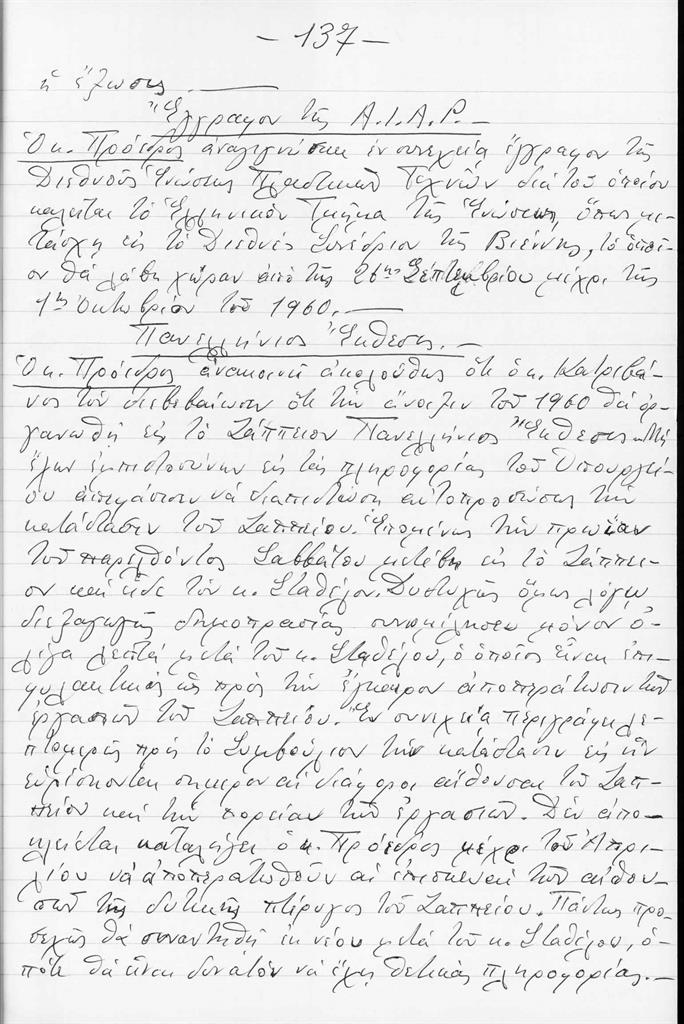 - 137 -
ἡ ἔξωσις.
Ἔγγραφον τῆς A.I.A.P. -
Ὁ κ. Πρόεδρος ἀναγιγνώσκει ἐν συνεχείᾳ ἔγγραφον τῆς
Διεθνοῦς Ἑνώσεως Πλαστικῶν Τεχνῶν διὰ τοῦ ὁποίου
καλεῖται τὸ Ἑλληνικὸν Τμῆμα τῆς Ἑνώσεως, ὅπως με-
τάσχῃ εἰς τὸ Διεθνὲς Συνέδριον τῆς Βιέννης, τὸ ὁποῖ-
ον θὰ λάβῃ χώραν ἀπὸ τῆς 26ης Σεπτεμβρίου μέχρι τῆς
1ης Ὀκτωβρίου τοῦ 1960. -
Πανελλήνιος Ἔκθεσις. -
Ὁ κ. Πρόεδρος ἀνακοινοῖ ἀκολούθως ὅτι ὁ κ. Κατριβά-
νος τὸν διεβεβαίωσεν ὅτι τὴν ἄνοιξιν τοῦ 1960 θὰ ὀρ-
γανωθῇ εἰς τὸ Ζάππειον Πανελλήνιος Ἔκθεσις. Μὴ
ἔχων ἐμπιστοσύνην εἰς τὰς πληροφορίας τοῦ Ὑπουργεί-
ου ἀπεφάσισεν νὰ διαπιστώσῃ αὐτοπροσώπως τὴν
κατάστασιν τοῦ Ζαππείου. Ἑπομένως τὴν πρωΐαν
τοῦ παρελθόντος Σαββάτου μετέβη εἰς τὸ Ζάππει-
ον καὶ εἶδε τὸν κ. Σταθέλον. Δυστυχῶς ὅμως λόγῳ
διεξαγωγῆς δημοπρασίας συνωμίλησεν μόνον ὀ-
λίγα λεπτὰ μετὰ τοῦ κ. Σταθέλου, ὁ ὁποῖος εἶναι ἐπι-
φυλακτικὸς ὡς πρὸς τὴν ἔγκαιρον ἀποπεράτωσιν τῶν
ἐργασιῶν τοῦ Ζαππείου. Ἐν συνεχείᾳ περιγράφει λε-
πτομερῶς πρὸς τὸ Συμβούλιον τὴν κατάστασιν εἰς ἣν
εὑρίσκονται σήμερον αἱ διάφοροι αἴθουσαι τοῦ Ζαπ-
πείου καὶ τὴν πορείαν τῶν ἐργασιῶν. Δὲν ἀπο-
κλείεται καταλήγει ὁ κ. Πρόεδρος μέχρι τοῦ Ἀπρι-
λίου νὰ ἀποπερατωθοῦν αἱ ἐπισκευαὶ τῶν αἰθου-
σῶν τῆς δυτικῆς πτέρυγος τοῦ Ζαππείου. Πάντως προ-
σεχῶς θὰ συναντηθῇ ἐκ νέου μετὰ τοῦ κ. Σταθέλου, ὁ-
πότε θὰ εἶναι δυνατὸν νὰ ἔχῃ θετικὰς πληροφορίας. -